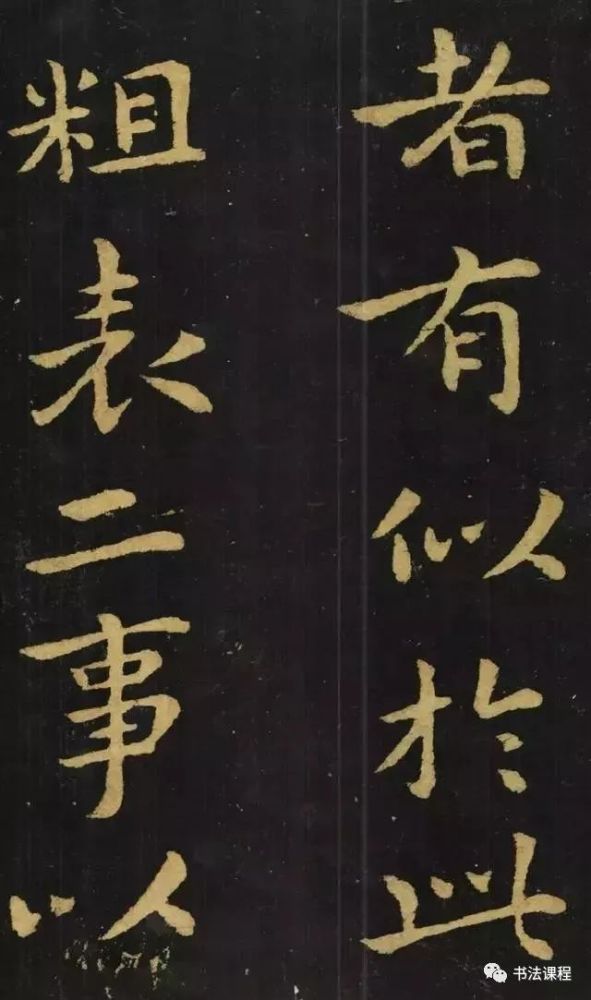 者有似於此
粗表二事以
书法课程